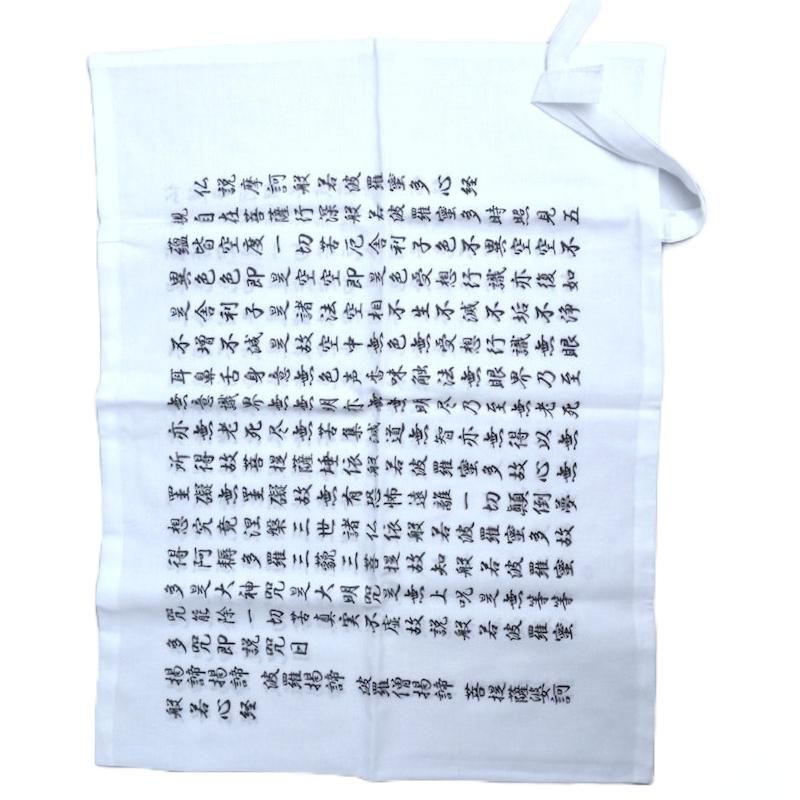 仏説摩訶般若波羅蜜多心経
観自在菩薩行深般若波羅蜜多時照見五
蘊皆空度一切苦厄舎利子色不異空空不
異色色即是空空即是色受想行識亦復如
是舎利子是諸法空相不生不滅不垢不浄
不増不減是故空中無色無受想行識無眼
耳鼻舌身意無色声香味触法無眼界乃至
無意識界無無明亦無無明尽乃至無老死
亦無老死尽無苦集滅道無智亦無得以無
所得故菩提薩埵依般若波羅蜜多故心無
罣礙無罣礙故無有恐怖遠離一切顛倒夢
想究竟涅槃三世諸仏依般若波羅蜜多故
得阿耨多羅三藐三菩提故知般若波羅蜜
多是大神呪是大明呪是無上呪是無等等
呪能除一切苦真実不虚故説般若波羅蜜
多呪即説呪曰
掲諦掲諦 波羅掲諦 波羅僧掲諦 菩提薩婆訶
般若心経